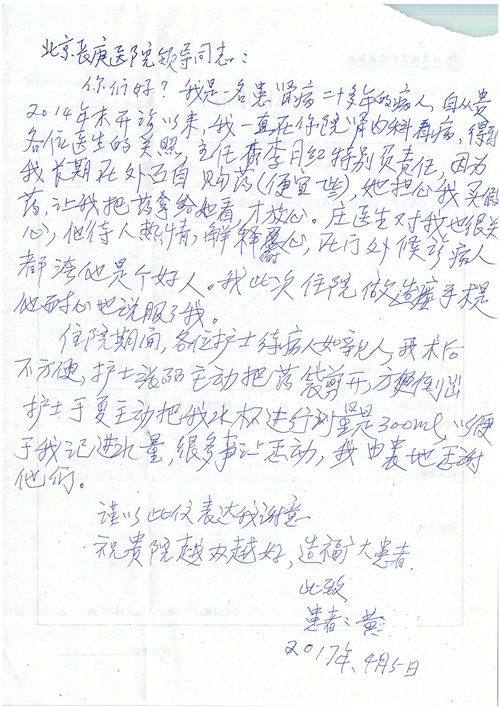 北京长庚医院领导同志：
你们好？我是一名患肾病二十多年的病人，自从贵
2014年末开诊以来，我一直在你院肾内科看病，得到
各位医生的关照，主任李月红特别负责任，因为
我长期在外面自购药（便宜些），她担心我买假
药，让我把药拿给她看，才放心。庄医生对我也很关
心，他待人热情，解释耐心，在门外候诊病人
都讲他是个好人。我此次住院做造瘘手术是
他耐心地说服了我。
住院期间，各位护士待病人如亲人，我术后
不方便，护士主动把药袋剪开，方便倒出
护士于夏主动把我水杯进行测量是300ml，以便
于我记进水量，很多事让感动，我由衷地感谢
他们。
谨以此仅表达我谢意
祝贵院越办越好，造福广大患者.
此致
患者：黄
2017年4月5日